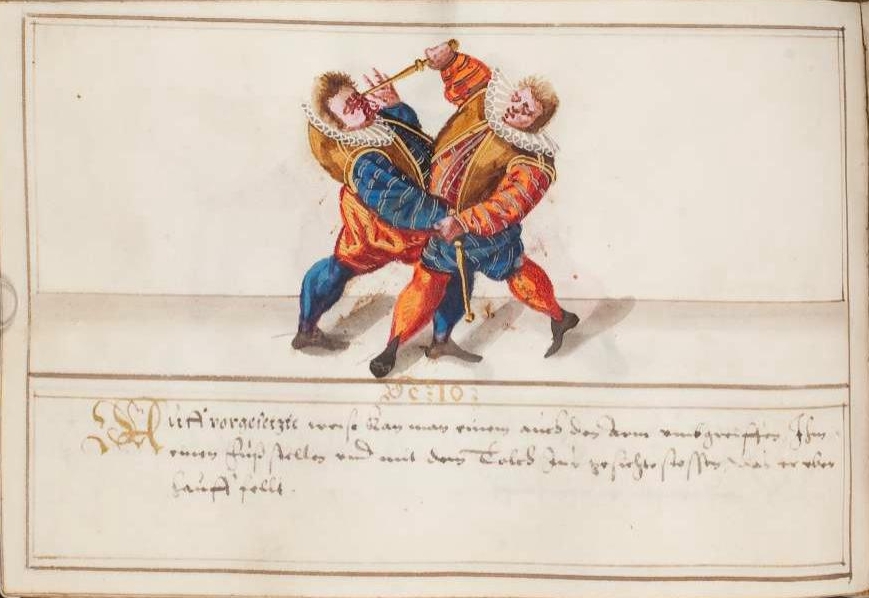 Auff vorgesetzte weise kan man einem auch den Arm umbgreiffen, Ihm
einen fuß stellen und mit dem Tolch Zur gesichte stossen, das er uber
hauff felt.